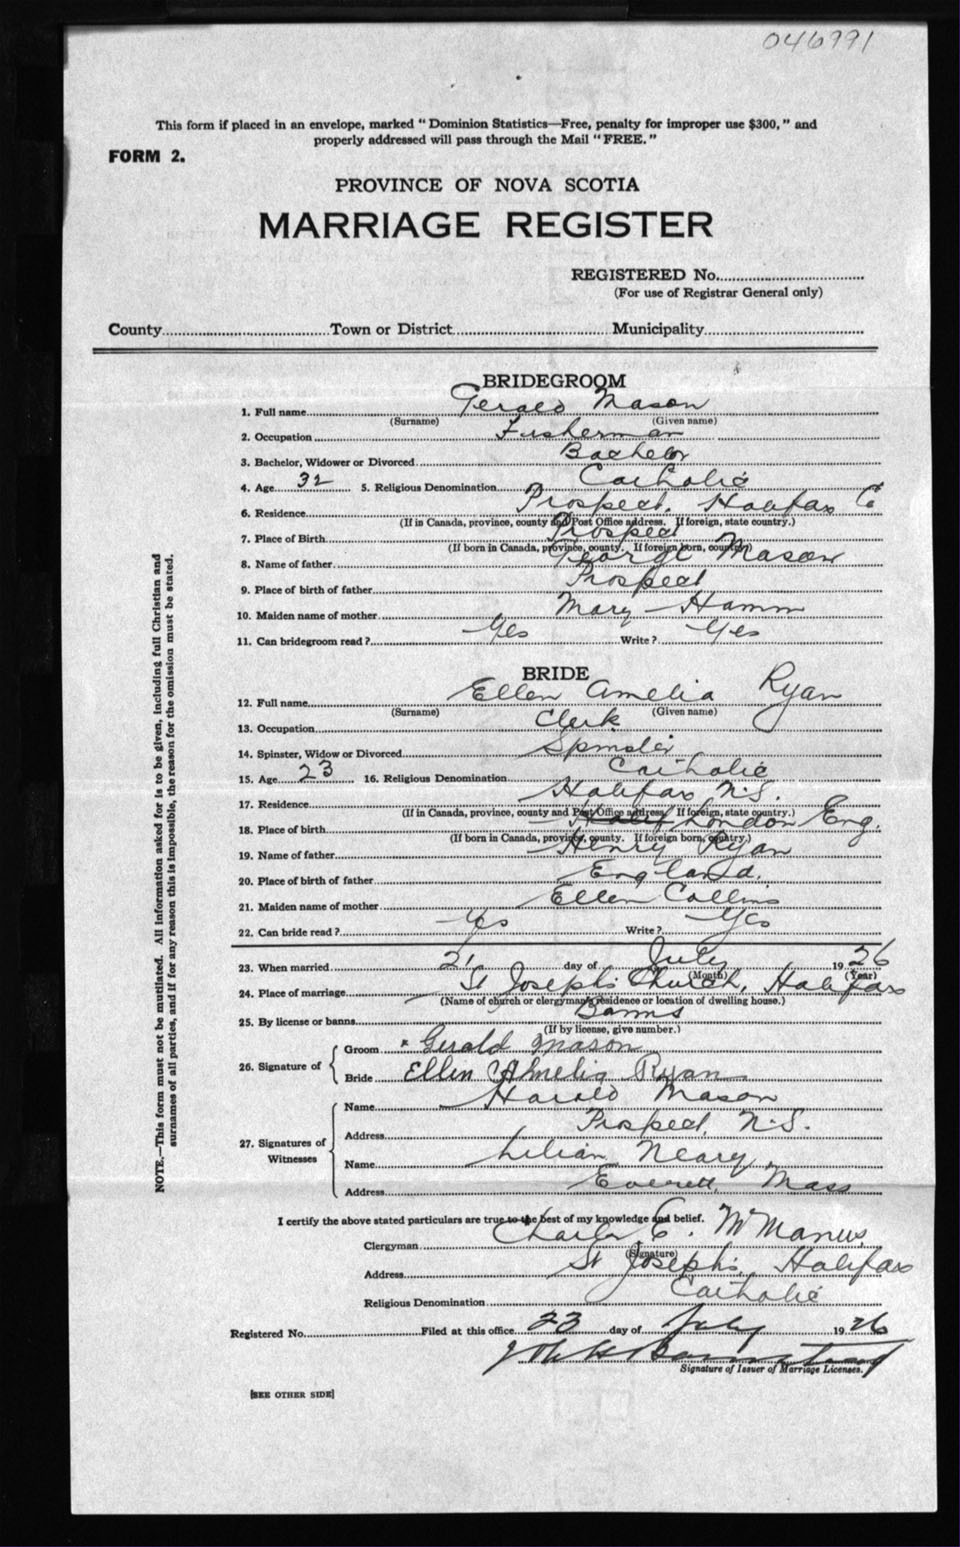 046991
This form if placed in an envelope, marked "Dominion Statistics—Free, penalty for improper use $300," and
properly addressed will pass through the Mail "FREE."
FORM 2.
PROVINCE OF NOVA SCOTIA
MARRIAGE REGISTER
REGISTERED No.
(For use of Registrar General only)
County Town or District Municipality
NOTE.—This form must not be mutilated. All information asked for is to be given, including full Christian and
surnames of all parties, and if for any reason this is impossible, the reason for the omission must be stated.
BRIDEGROOM
1. Full name Gerald Mason
(Surname) (Given name)
2. Occupation Fisherman
3. Bachelor, Widower or Divorced Bachelor
4. Age 32 5. Religious Denomination Catholic
6. Residence Prospect, Halifax Co
(If in Canada, province, county and Post Office address. If foreign, state country.)
7. Place of Birth Prospect
(If born in Canada, province, county. If foreign born, country.)
8. Name of father George Mason
9. Place of birth of father Prospect
10. Maiden name of mother Mary Hamm
11. Can bridegroom read? Yes Write? Yes
BRIDE
12. Full name Ellen Amelia Ryan
(Surname) (Given name)
13. Occupation Clerk
14. Spinster, Widow or Divorced Spinster
15. Age 23 16. Religious Denomination Catholic
17. Residence Halifax N.S.
(If in Canada, province, county and Post Office address. If foreign, state country.)
18. Place of birth London Eng.
(If born in Canada, province, county. If foreign born, country.)
19. Name of father Henry Ryan
20. Place of birth of father England.
21. Maiden name of mother Ellen Collins
22. Can bride read? Yes Write? Yes
23. When married 21 day of July 1926
(Month) (Year)
24. Place of marriage St Joseph's Church, Halifax
(Name of church or clergyman's residence or location of dwelling house.)
25. By license or banns Banns
(If by license, give number.)
26. Signature of Groom × Gerald Mason
Bride Ellen Amelia Ryan
27. Signatures of Witnesses Name Harold Mason
Address Prospect, N.S.
Name Lilian Neary
Address Everett, Mass
I certify the above stated particulars are true to the best of my knowledge and belief.
Clergyman Charles E. McManus
(Signature)
Address St Joseph's, Halifax
Religious Denomination Catholic
Registered No. Filed at this office 23 day of July 1926
Signature of Issuer of Marriage Licenses.
[SEE OTHER SIDE]